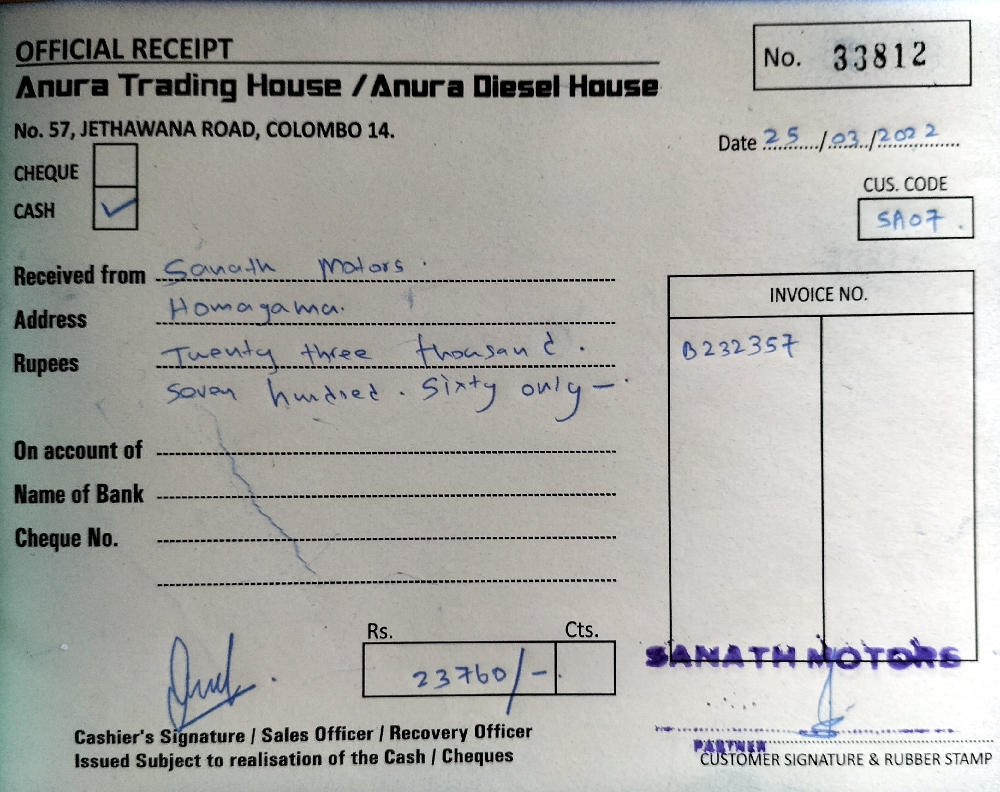 OFFICIAL RECEIPT
No. 33812
Anura Trading House / Anura Diesel House
No. 57, JETHAWANA ROAD, COLOMBO 14.
Date 25/03/2022
CHEQUE
CASH ✓
CUS. CODE
SA07
Received from Sanath Motors.
Address Homagama.
Rupees Twenty three thousand.
Seven hundred. Sixty only –
INVOICE NO.
B232357
On account of
Name of Bank
Cheque No.
Rs. Cts.
23760/–
SANATH MOTORS
PARTNER
Cashier's Signature / Sales Officer / Recovery Officer
Issued Subject to realisation of the Cash / Cheques
CUSTOMER SIGNATURE & RUBBER STAMP